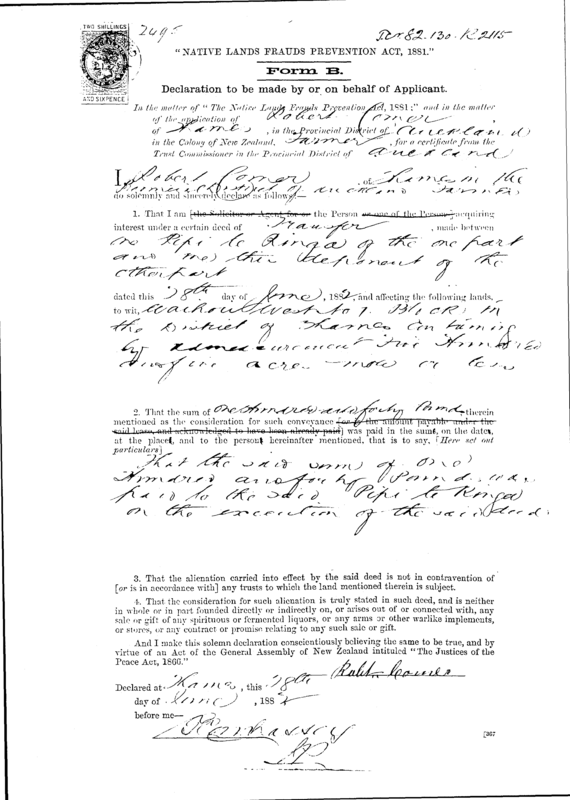 TWO SHILLINGS
AND SIXPENCE
2495
Tcr 82.130. R2115
"NATIVE LANDS FRAUDS PREVENTION ACT, 1881."
Form B.
Declaration to be made by or on behalf of Applicant.
In the matter of "The Native Lands Frauds Prevention Act, 1881;" and in the matter
of the application of Robert Comer
of Thames, in the Provincial District of Auckland
in the Colony of New Zealand, Farmer, for a certificate from the
Trust Commissioner in the Provincial District of Auckland
I, Robert Comer of Thames in the
Provincial District of Auckland Farmer
do solemnly and sincerely declare as follows:—
1. That I am [the Solicitor or Agent for or the Person or one of the Persons] acquiring
interest under a certain deed of Transfer, made between
one Pipi te Ringa of the one part
and me this deponent of the
other part
dated this 28th day of June, 1882, and affecting the following lands,
to wit, West No 7 Block in
the District of Thames Containing
by admeasurement Five Hundred
acres more or less
2. That the sum of One Hundred and forty Pounds therein
mentioned as the consideration for such conveyance [or is the amount payable under the
said lease, and acknowledged to have been already paid] was paid in the sums, on the dates,
at the places, and to the persons hereinafter mentioned, that is to say, [Here set out
particulars]
That the said sum of One
Hundred and forty Pounds was
paid to the said Pipi te Ringa
on the execution of the said deed.
3. That the alienation carried into effect by the said deed is not in contravention of
[or is in accordance with] any trusts to which the land mentioned therein is subject.
4. That the consideration for such alienation is truly stated in such deed, and is neither
in whole or in part founded directly or indirectly on, or arises out of or connected with, any
sale or gift of any spirituous or fermented liquors, or any arms or other warlike implements,
or stores, or any contract or promise relating to any such sale or gift.
And I make this solemn declaration conscientiously believing the same to be true, and by
virtue of an Act of the General Assembly of New Zealand intituled "The Justices of the
Peace Act, 1866."
Robt. Comer
Declared at Thames, this 28th
day of June, 1882
before me—
JP
[367